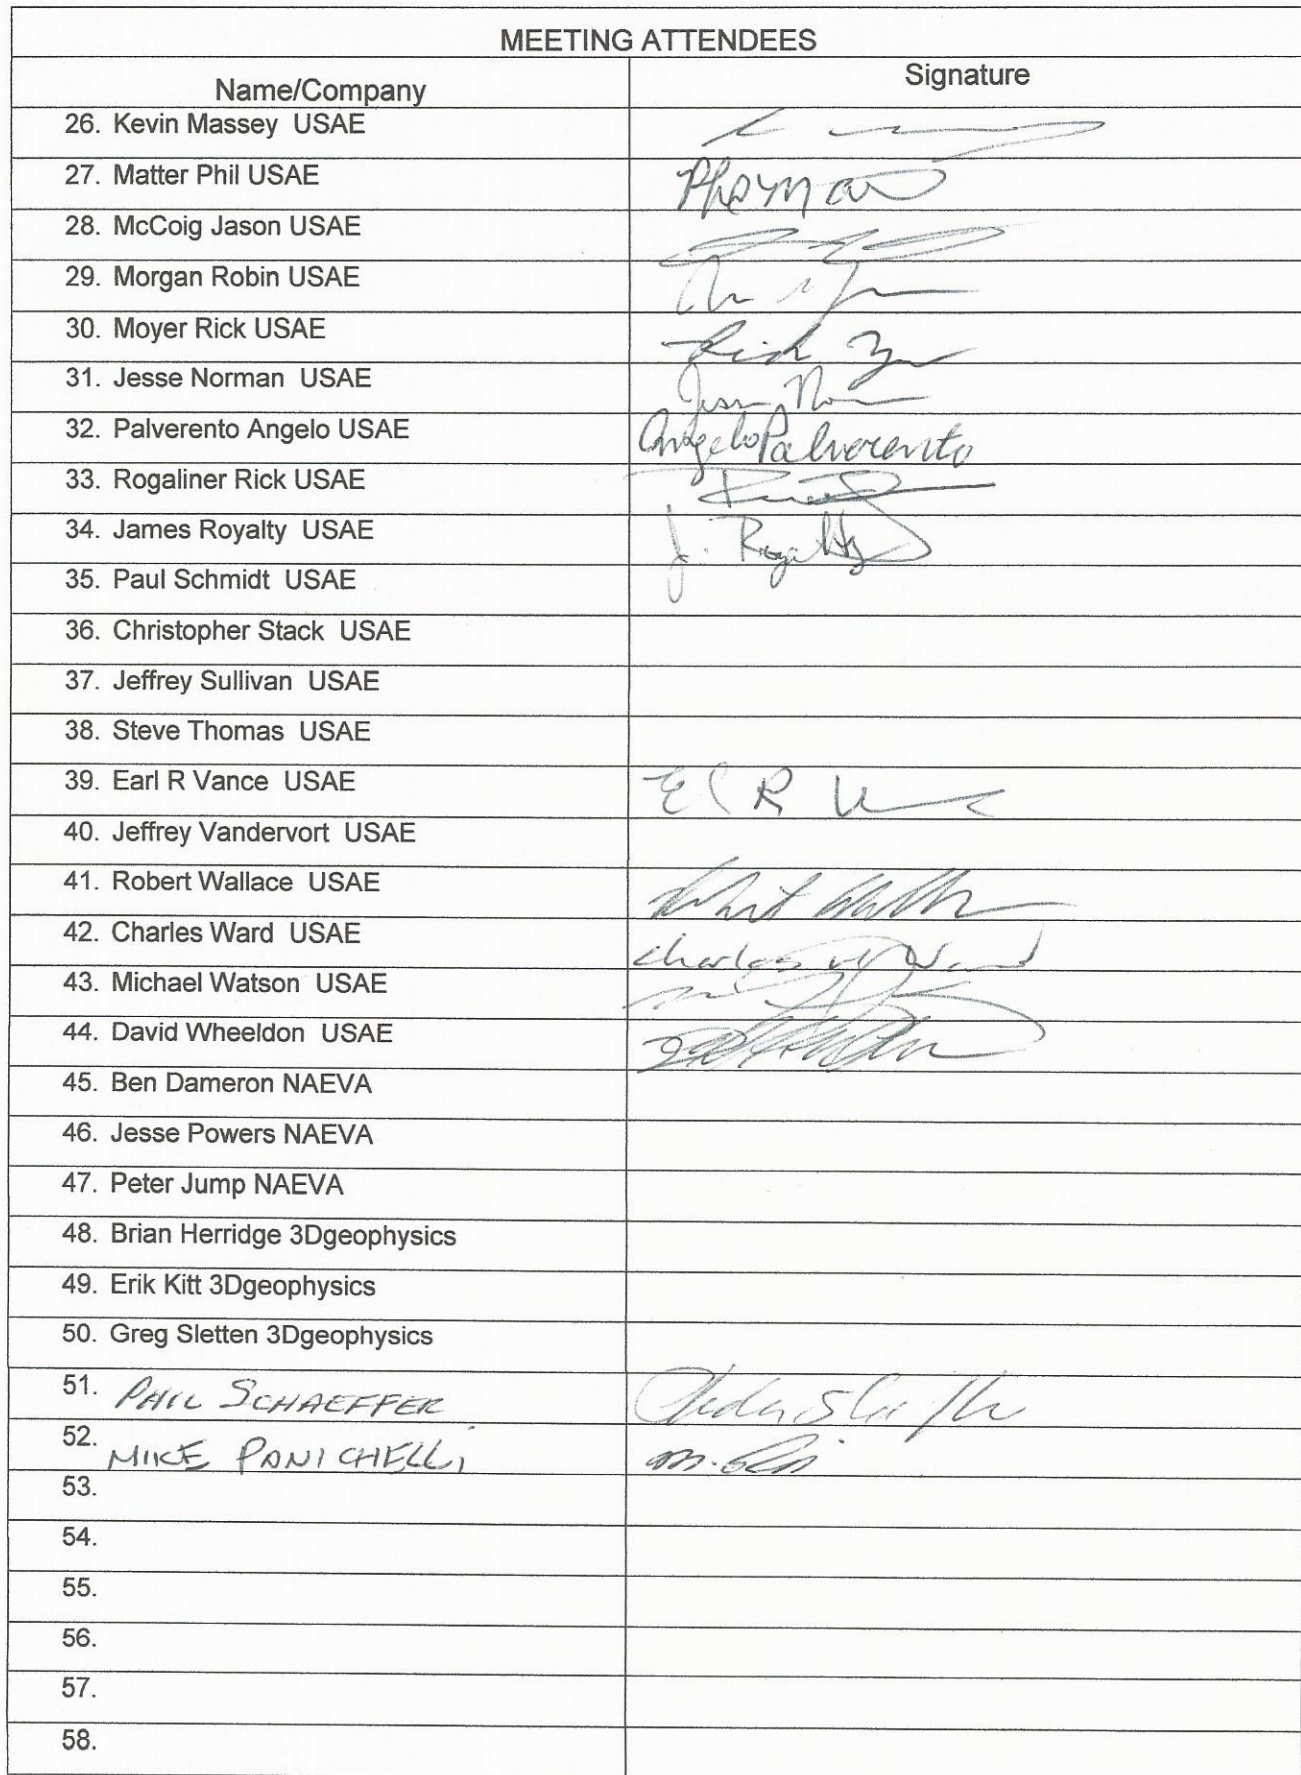 MEETING ATTENDEES
Name/Company Signature
26. Kevin Massey USAE
27. Matter Phil USAE
28. McCoig Jason USAE
29. Morgan Robin USAE
30. Moyer Rick USAE Rick
31. Jesse Norman USAE
32. Palverento Angelo USAE Angelo Palverento
33. Rogaliner Rick USAE
34. James Royalty USAE J. Royalty
35. Paul Schmidt USAE
36. Christopher Stack USAE
37. Jeffrey Sullivan USAE
38. Steve Thomas USAE
39. Earl R Vance USAE
40. Jeffrey Vandervort USAE
41. Robert Wallace USAE
42. Charles Ward USAE Charles W Ward
43. Michael Watson USAE
44. David Wheeldon USAE
45. Ben Dameron NAEVA
46. Jesse Powers NAEVA
47. Peter Jump NAEVA
48. Brian Herridge 3Dgeophysics
49. Erik Kitt 3Dgeophysics
50. Greg Sletten 3Dgeophysics
51. PHIL SCHAEFFER
52. MIKE PANICHELLI
53.
54.
55.
56.
57.
58.